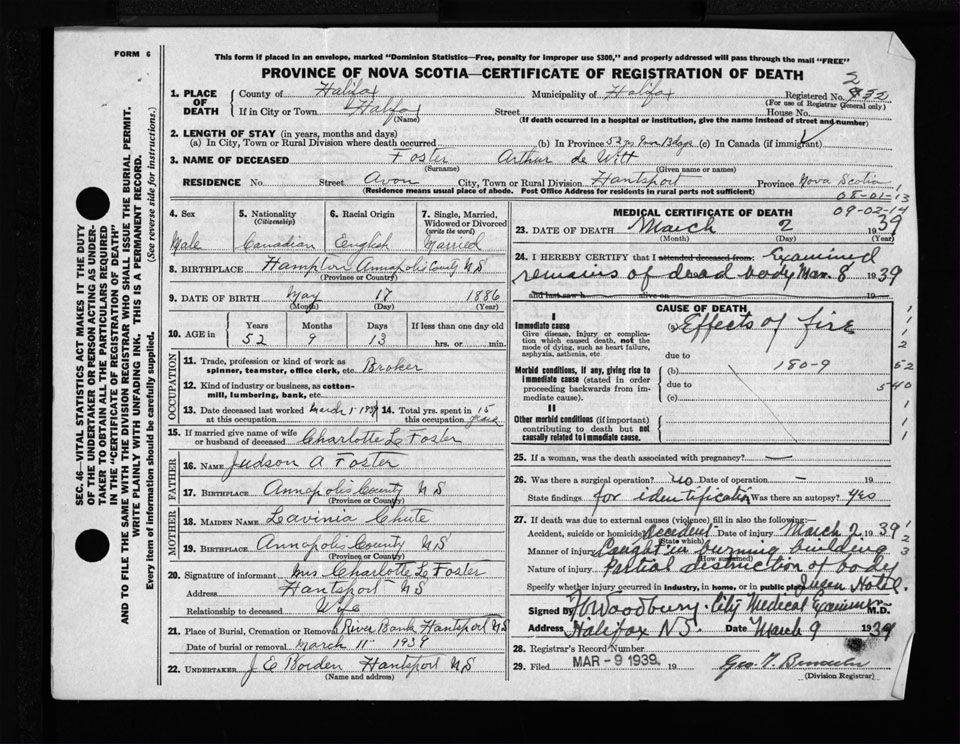 FORM 6
This form if placed in an envelope, marked "Dominion Statistics—Free, penalty for improper use $300," and properly addressed will pass through the mail "FREE"
PROVINCE OF NOVA SCOTIA—CERTIFICATE OF REGISTRATION OF DEATH
SEC. 46—VITAL STATISTICS ACT MAKES IT THE DUTY
OF THE UNDERTAKER OR PERSON ACTING AS UNDER-
TAKER TO OBTAIN ALL THE PARTICULARS REQUIRED
IN THE "CERTIFICATE OF REGISTRATION OF DEATH"
AND TO FILE THE SAME WITH THE DIVISION REGISTRAR WHO SHALL ISSUE THE BURIAL PERMIT.
WRITE PLAINLY WITH UNFADING INK. THIS IS A PERMANENT RECORD.
Every item of information should be carefully supplied. (See reverse side for instructions.)
1. PLACE OF DEATH County of Halifax Municipality of Halifax Registered No. 2 832
(For use of Registrar General only)
If in City or Town Halifax Street House No.
(Name) (If death occurred in a hospital or institution, give the name instead of street and number)
2. LENGTH OF STAY (in years, months and days)
(a) In City, Town or Rural Division where death occurred (b) In Province 52 yrs 9 mos 13 days (c) In Canada (if immigrant)
3. NAME OF DECEASED Foster Arthur de Witt
(Surname) (Given name or names)
RESIDENCE No. Street Avon City, Town or Rural Division Hantsport Province Nova Scotia
(Residence means usual place of abode. Post Office Address for residents in rural parts not sufficient)
08-01-13
09-02-14
4. Sex 5. Nationality (Citizenship) 6. Racial Origin 7. Single, Married, Widowed or Divorced (write the word)
Male Canadian English Married
8. BIRTHPLACE Hampton Annapolis County N S
(Province or Country)
9. DATE OF BIRTH May 17 1886
(Month) (Day) (Year)
10. AGE in Years Months Days If less than one day old
52 9 13 hrs. or min.
OCCUPATION
11. Trade, profession or kind of work as spinner, teamster, office clerk, etc. Broker
12. Kind of industry or business, as cotton-mill, lumbering, bank, etc.
13. Date deceased last worked at this occupation March 1 1939 14. Total yrs. spent in this occupation 15 years
15. If married give name of wife or husband of deceased Charlotte L Foster
FATHER
16. NAME Judson A Foster
17. BIRTHPLACE Annapolis County N S
(Province or Country)
MOTHER
18. MAIDEN NAME Lavinia Chute
19. BIRTHPLACE Annapolis County N S
(Province or Country)
20. Signature of informant Mrs Charlotte L Foster
Address Hantsport N S
Relationship to deceased Wife
21. Place of Burial, Cremation or Removal River Bank Hantsport N S
Date of burial or removal March 11 1939
22. UNDERTAKER J E Borden Hantsport N S
(Name and address)
MEDICAL CERTIFICATE OF DEATH
23. DATE OF DEATH March 2 1939
(Month) (Day) (Year)
24. I HEREBY CERTIFY that I attended deceased from: Examined
remains of dead body Mar. 8 1939
and last saw h alive on 19
CAUSE OF DEATH
I
Immediate cause (a) Effects of fire
Give disease, injury or complication which caused death, not the mode of dying, such as heart failure, asphyxia, asthenia, etc
due to
Morbid conditions, if any, giving rise to immediate cause (stated in order proceeding backwards from immediate cause).
(b) 180-9
due to
(c)
II
Other morbid conditions (if important) contributing to death but not causally related to immediate cause.
52
540
25. If a woman, was the death associated with pregnancy? —
26. Was there a surgical operation? No Date of operation —
State findings for identification Was there an autopsy? Yes
27. If death was due to external causes (violence) fill in also the following:—
Accident, suicide or homicide? Accident Date of injury March 2 1939
(State which)
Manner of injury Caught in burning building
(How sustained)
Nature of injury Partial destruction of body
Specify whether injury occurred in industry, in home, or in public place Queen Hotel
Signed by Woodbury City Medical Examiner M.D.
Address Halifax N S. Date March 9 1939
28. Registrar's Record Number
29. Filed MAR - 9 1939 19
(Division Registrar)